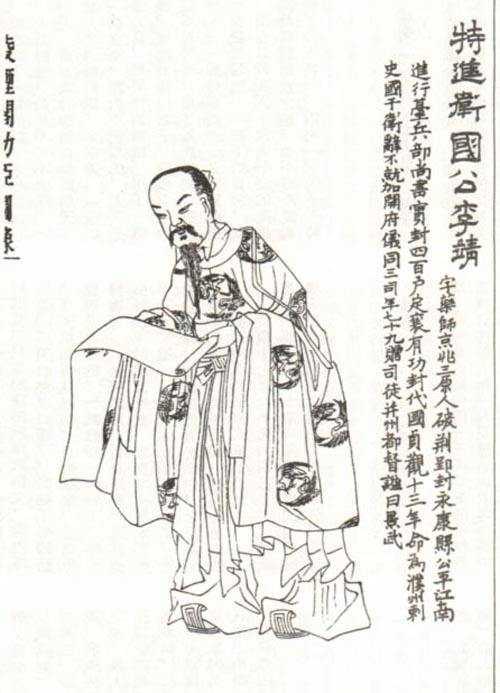 特進衛國公李靖
字藥師京兆三原人破荆郢封永康縣公平江南
進行臺兵部尚書實封四百戶定襄有功封代國貞觀十三年命為濮州刺
史國于衛辭不就加開府儀同三司年七十九贈司徒并州都督謚曰景武
凌煙閣功臣圖像